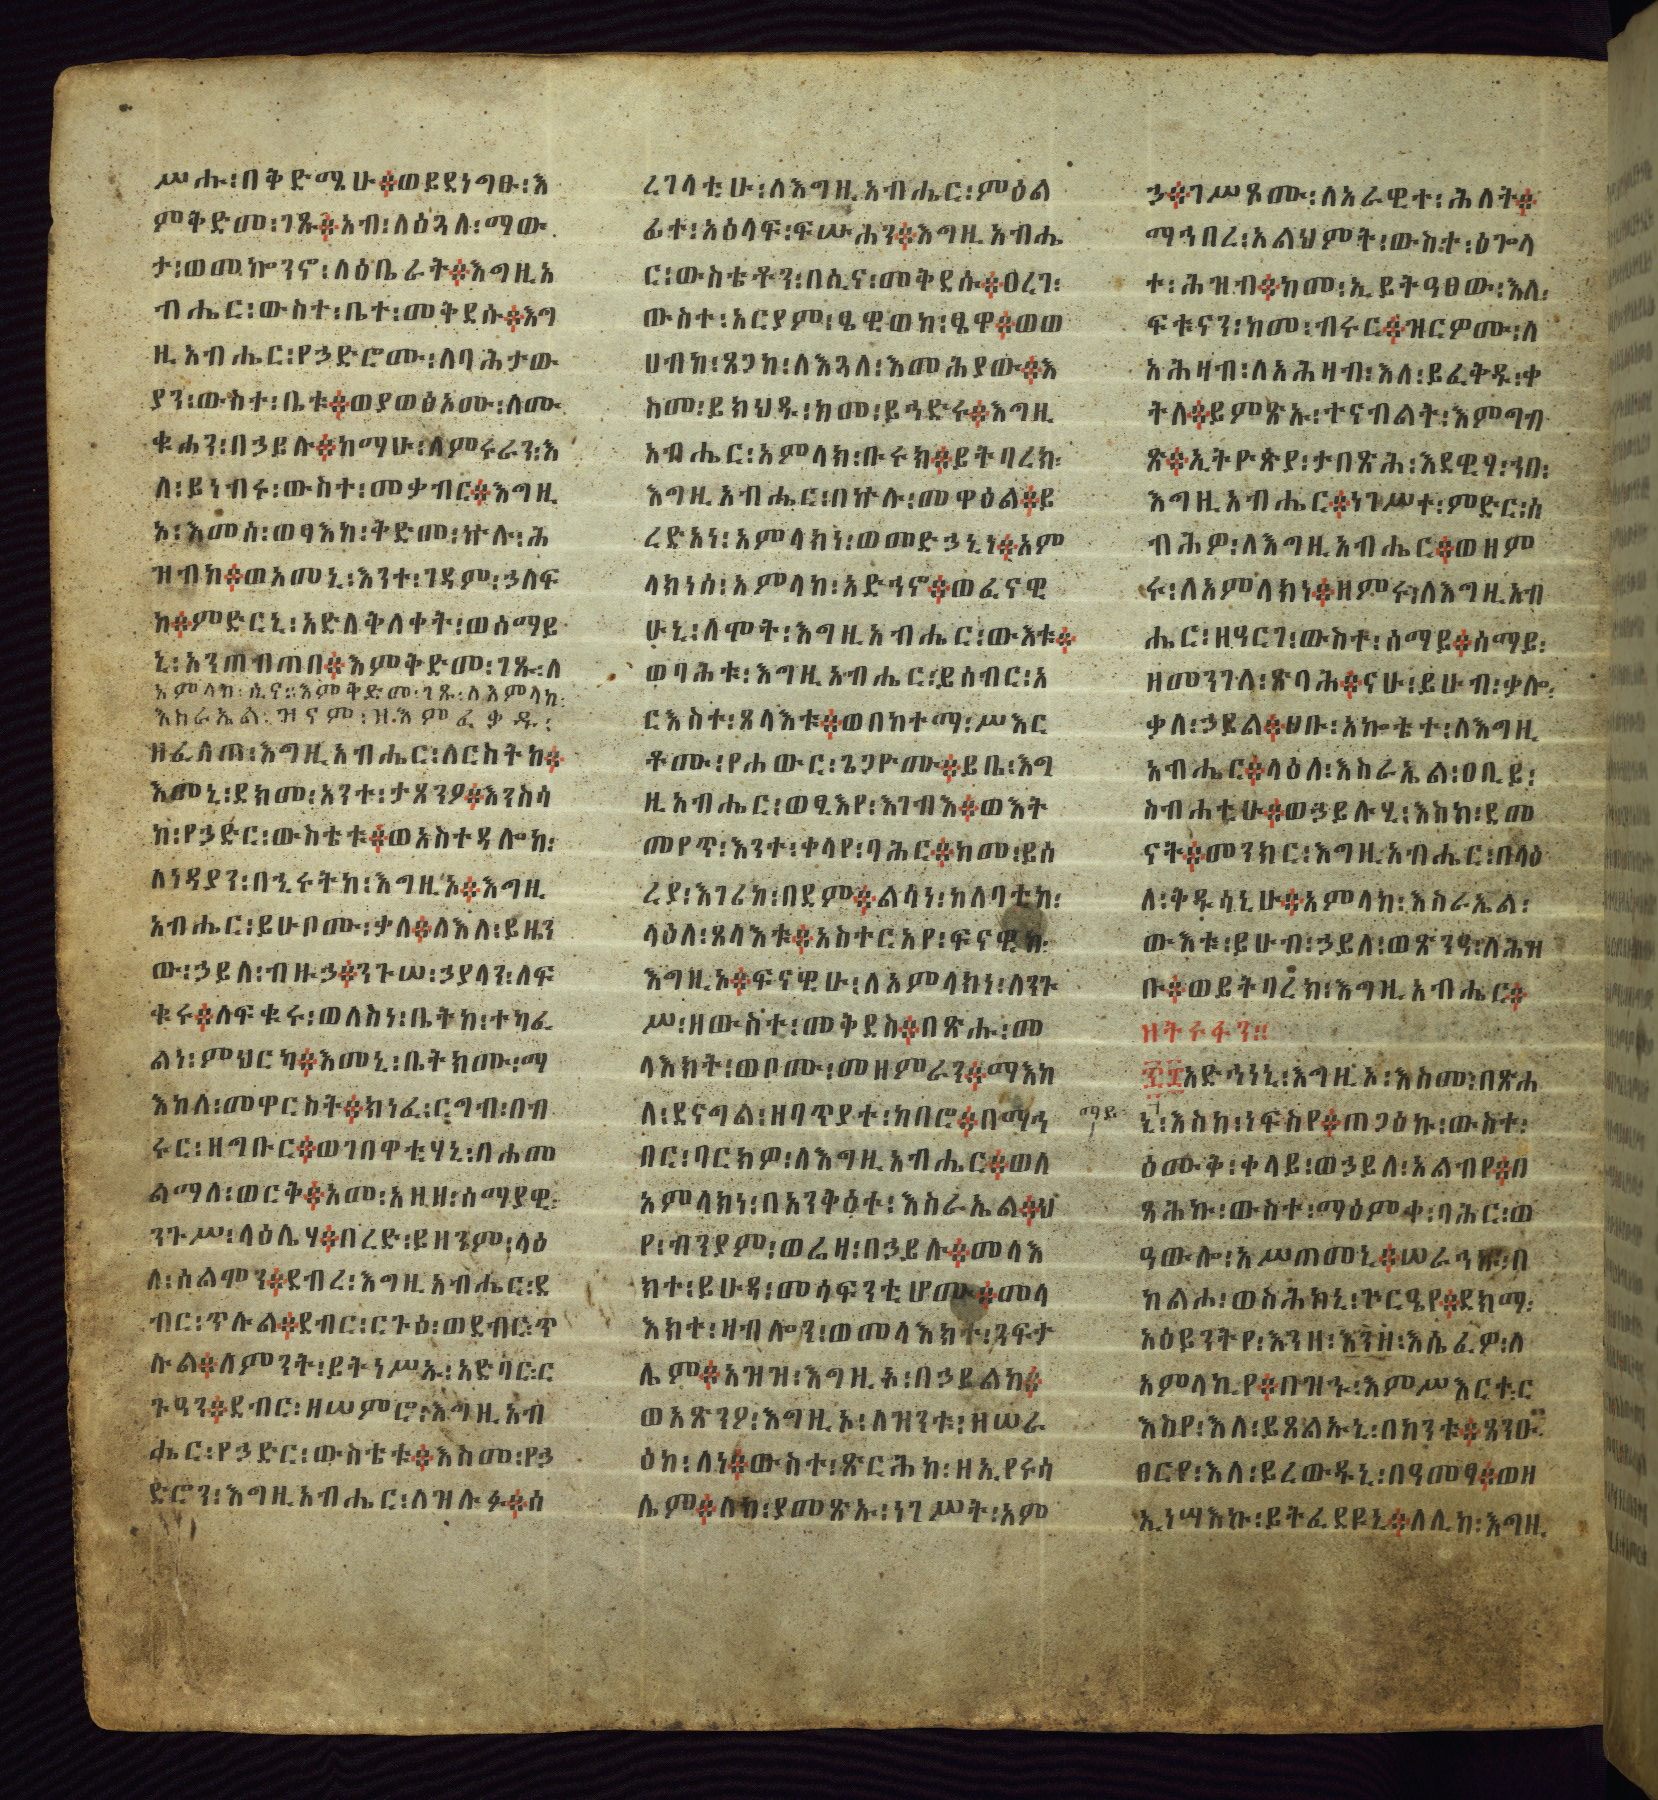 ሥሑ፡በቅድሜሁ፨ወይደነግፁ፡እ
ምቅድመ፡ገጹ፨አብ፡ለዕጓለ፡ማው
ታ፡ወመኰንኖ፡ለዕቤራት፨እግዚአ
ብሔር፡ውስተ፡ቤተ፡መቅደሱ፨እግ
ዚአብሔር፡የኃድሮሙ፡ለባሕታው
ያን፡ውስተ፡ቤቱ፨ወያወፅኦሙ፡ለሙ
ቁሐን፡በኃይሉ፨ከማሁ፡ለምሩራን፡እ
ለ፡ይነብሩ፡ውስተ፡መቃብር፨እግዚ
አ፡እመሰ፡ወፃእከ፡ቅድመ፡ኵሉ፡ሕ
ዝብከ፨ወአመኒ፡እንተ፡ገዳም፡ኃለፍ
ከ፨ምድርኒ፡አድለቅለቀት፡ወሰማይ
ኒ፡አንጠብጠበ፨እምቅድመ፡ገጹ፡ለ
አምላከ፡ሲና፡፡እምቅድመ፡ገጹ፡ለአምላከ፡
እስራኤል፡ዝናም፡ዘእምፈቃዱ፡
ዘፈለጠ፡እግዚአብሔር፡ለርስትከ፨
እመኒ፡ደክመ፡አንተ፡ታጸንዖ፨እንስሳ
ከ፡የኃድር፡ውስቴቱ፨ወአስተዳሎከ፡
ለነዳያን፡በኂሩትከ፡እግዚኦ፨እግዚ
አብሔር፡ይሁቦሙ፡ቃለ፨ለእለ፡ይዜን
ው፡ኃይለ፡ብዙኃ፨ንጉሠ፡ኃያላን፡ለፍ
ቁሩ፨ለፍቁሩ፡ወለስነ፡ቤትከ፡ተካፈ
ልነ፡ምህርካ፨እመኒ፡ቤትክሙ፡ማ
እከለ፡መዋርስት፨ክነፈ፡ርግብ፡በብ
ሩር፡ዘግቡር፨ወገበዋቲሃኒ፡በሐመ
ልማለ፡ወርቅ፨አመ፡አዘዘ፡ሰማያዊ፡
ንጉሥ፡ላዕሌሃ፨በረድ፡ይዘንም፡ላዕ
ለ፡ሰልሞን፨ደብረ፡እግዚአብሔር፡ደ
ብር፡ጥሉል፨ደብር፡ርጉዕ፡ወደብር፡ጥ
ሉል፨ለምንት፡ይትነሥኡ፡አድባር፡ር
ጉዓን፨ደብር፡ዘሠምሮ፡እግዚአብ
ሔር፡የኃድር፡ውስቴቱ፨እስመ፡የኃ
ድሮን፡እግዚአብሔር፡ለዝሉፉ፨ሰ
ረገላቲሁ፡ለእግዚአብሔር፡ምዕል
ፊተ፡አዕላፍ፡ፍሡሐን፨እግዚአብሔ
ር፡ውስቴቶን፡በሲና፡መቅደሱ፨ዐረገ፡
ውስተ፡አርያም፡ፄዊወከ፡ፄዋ፨ወወ
ሀብከ፡ጸጋከ፡ለእጓለ፡እመሕያው፨እ
ስመ፡ይክህዱ፡ከመ፡ይኅድሩ፨እግዚ
አብሔር፡አምላክ፡ቡሩክ፨ይትባረክ፡
እግዚአብሔር፡በኵሉ፡መዋዕል፨ይ
ረድአነ፡አምላክነ፡ወመድኃኒነ፨አም
ላክነሰ፡አምላከ፡አድኅኖ፨ወፈናዊ
ሁኒ፡ለሞት፡እግዚአብሔር፡ውእቱ፨
ወባሕቱ፡እግዚአብሔር፡ይሰብር፡አ
ርእስተ፡ጸላእቱ፨ወበከተማ፡ሥእር
ቶሙ፡የሐውር፡ጌጋዮሙ፨ይቤ፡እግ
ዚአብሔር፡ወፂእየ፡እገብእ፨ወእት
መየጥ፡እንተ፡ቀላየ፡ባሕር፨ከመ፡ይሰ
ረያ፡እገሪከ፡በደም፨ልሳነ፡ከለባቲከ፡
ላዕለ፡ጸላእቱ፨አስተርአየ፡ፍናዊከ፡
እግዚኦ፨ፍናዊሁ፡ለአምላክነ፡ለንጉ
ሥ፡ዘውስተ፡መቅደስ፨በጽሑ፡መ
ላእክት፡ወቦሙ፡መዘምራን፨ማእከ
ለ፡ደናግል፡ዘባጥያተ፡ከበሮ፨በማኅ
በር፡ባርክዎ፡ለእግዚአብሔር፨ወለ
አምላክነ፡በአንቅዕተ፡እስራኤል፨ህ
የ፡ብንያም፡ወሬዛ፡በኃይሉ፨መላእ
ክተ፡ይሁዳ፡መሳፍንቲሆሙ፨መላ
እክተ፡ዛብሎን፡ወመላእክተ፡ንፍታ
ሌም፨አዝዝ፡እግዚኦ፡በኃይልከ፨
ወአጽንዖ፡እግዚኦ፡ለዝንቱ፡ዘሠራ
ዕከ፡ለነ፨ውስተ፡ጽርሕከ፡ዘኢየሩሳ
ሌም፨ለከ፡ያመጽኡ፡ነገሥት፡አም
ኃ፨ገሥጾሙ፡ለአራዊተ፡ሕለት፨
ማኅበረ፡አልህምት፡ውስተ፡ዕጐላ
ተ፡ሕዝብ፨ከመ፡ኢይትዓፀው፡እለ፡
ፍቱናን፡ከመ፡ብሩር፨ዝርዎሙ፡ለ
አሕዛብ፡ለአሕዛብ፡እለ፡ይፈቅዱ፡ቀ
ትለ፨ይምጽኡ፡ተናብልት፡እምግብ
ጽ፨ኢትዮጵያ፡ታበጽሕ፡እደዊሃ፡ኀበ፡
እግዚአብሔር፨ነገሥተ፡ምድር፡ሰ
ብሕዎ፡ለእግዚአብሔር፨ወዘም
ሩ፡ለአምላክነ፨ዘምሩ፡ለእግዚአብ
ሔር፡ዘዓርገ፡ውስቶ፡ሰማይ፨ሰማይ፡
ዘመንገለ፡ጽባሕ፨ናሁ፡ይሁብ፡ቃሎ፡
ቃለ፡ኃይል፨ሀቡ፡አኰቴተ፡ለእግዚ
አብሔር፨ላዕለ፡እስራኤል፡ዐቢይ፡
ስብሐቲሁ፨ወኃይሉሂ፡እስከ፡ደመ
ናት፨መንክር፡እግዚአብሔር፡በላዕ
ለ፡ቅዱሳኒሁ፨አምላከ፡እስራኤል፡
ውእቱ፡ይሁብ፡ኃይለ፡ወጽንዓ፡ለሕዝ
ቡ፨ወይትባረክ፡እግዚአብሔር፨
ዘትሩፋን፡፡
፷፰አድኅነኒ፡እግዚኦ፡እስመ፡በጽሐ
ማይ
ኒ፡እስከ፡ነፍስየ፨ጠጋዕኩ፡ውስተ፡
ዕሙቅ፡ቀላይ፡ወኃይለ፡አልብየ፨በ
ጻሕኩ፡ውስተ፡ማዕምቀ፡ባሕር፡ወ
ዓውሎ፡አሥጠመኒ፨ሠራኅኩ፡በ
ከልሖ፡ወስሕክኒ፡ጕርዔየ፨ደክማ፡
አዕይንትየ፡እንዘ፡እንዘ፡እሴፈዎ፡ለ
አምላኪየ፨በዝኁ፡እምሥእርተ፡ር
እስየ፡እለ፡ይጸልኡኒ፡በከንቱ፨ጸንዑ
ፀርየ፡እለ፡ይረውዱኒ፡በዓመፃ፨ወዘ
ኢነሣእኩ፡ይትፈደዩኒ፨ለሊከ፡እግዚ